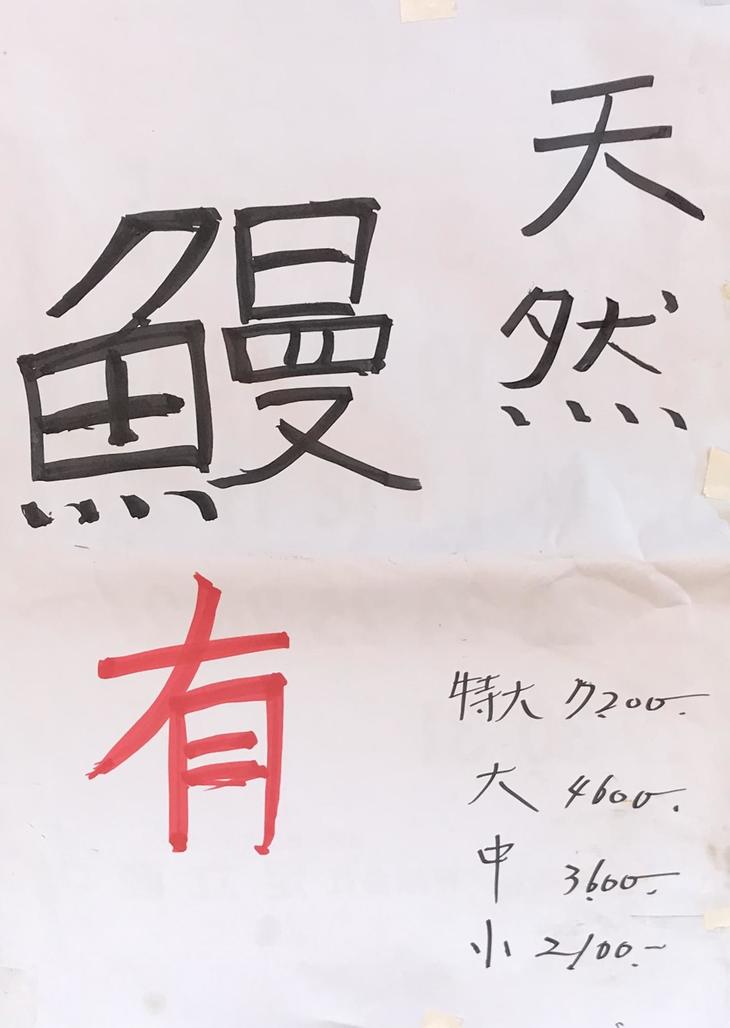 天然
鰻
有
特大 7200-.
大 4600-.
中 3600-.
小 2100.-